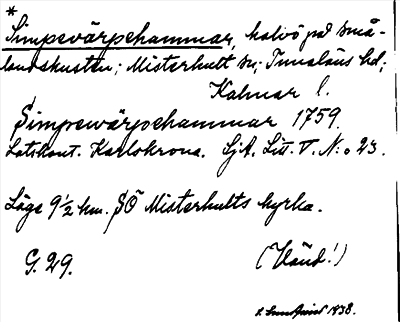 *
Simpevärpehammar, halvö på små-
landskusten; Misterhult sn; Tunaläns hd;
Kalmar l.
Simpewärpehammar 1759.
Lotskont. Karlskrona. SjA. Lit. V. N:o 23.
Läge 9 1/2 km. SÖ Misterhults kyrka.
G. 29.
(Vänd!)
1938.